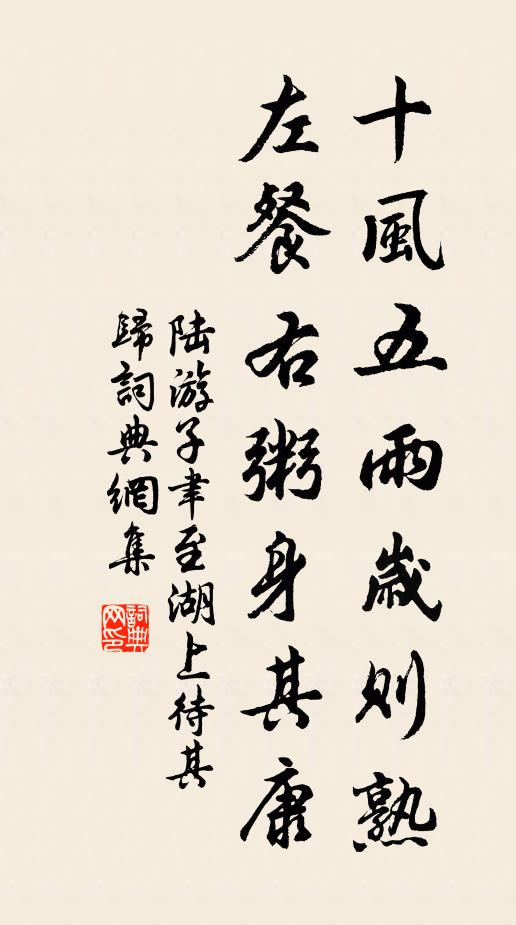 十風五雨歲則熟
左餐右粥身其康
陸游子聿至湖上待其
歸詞典網集
詞典網印